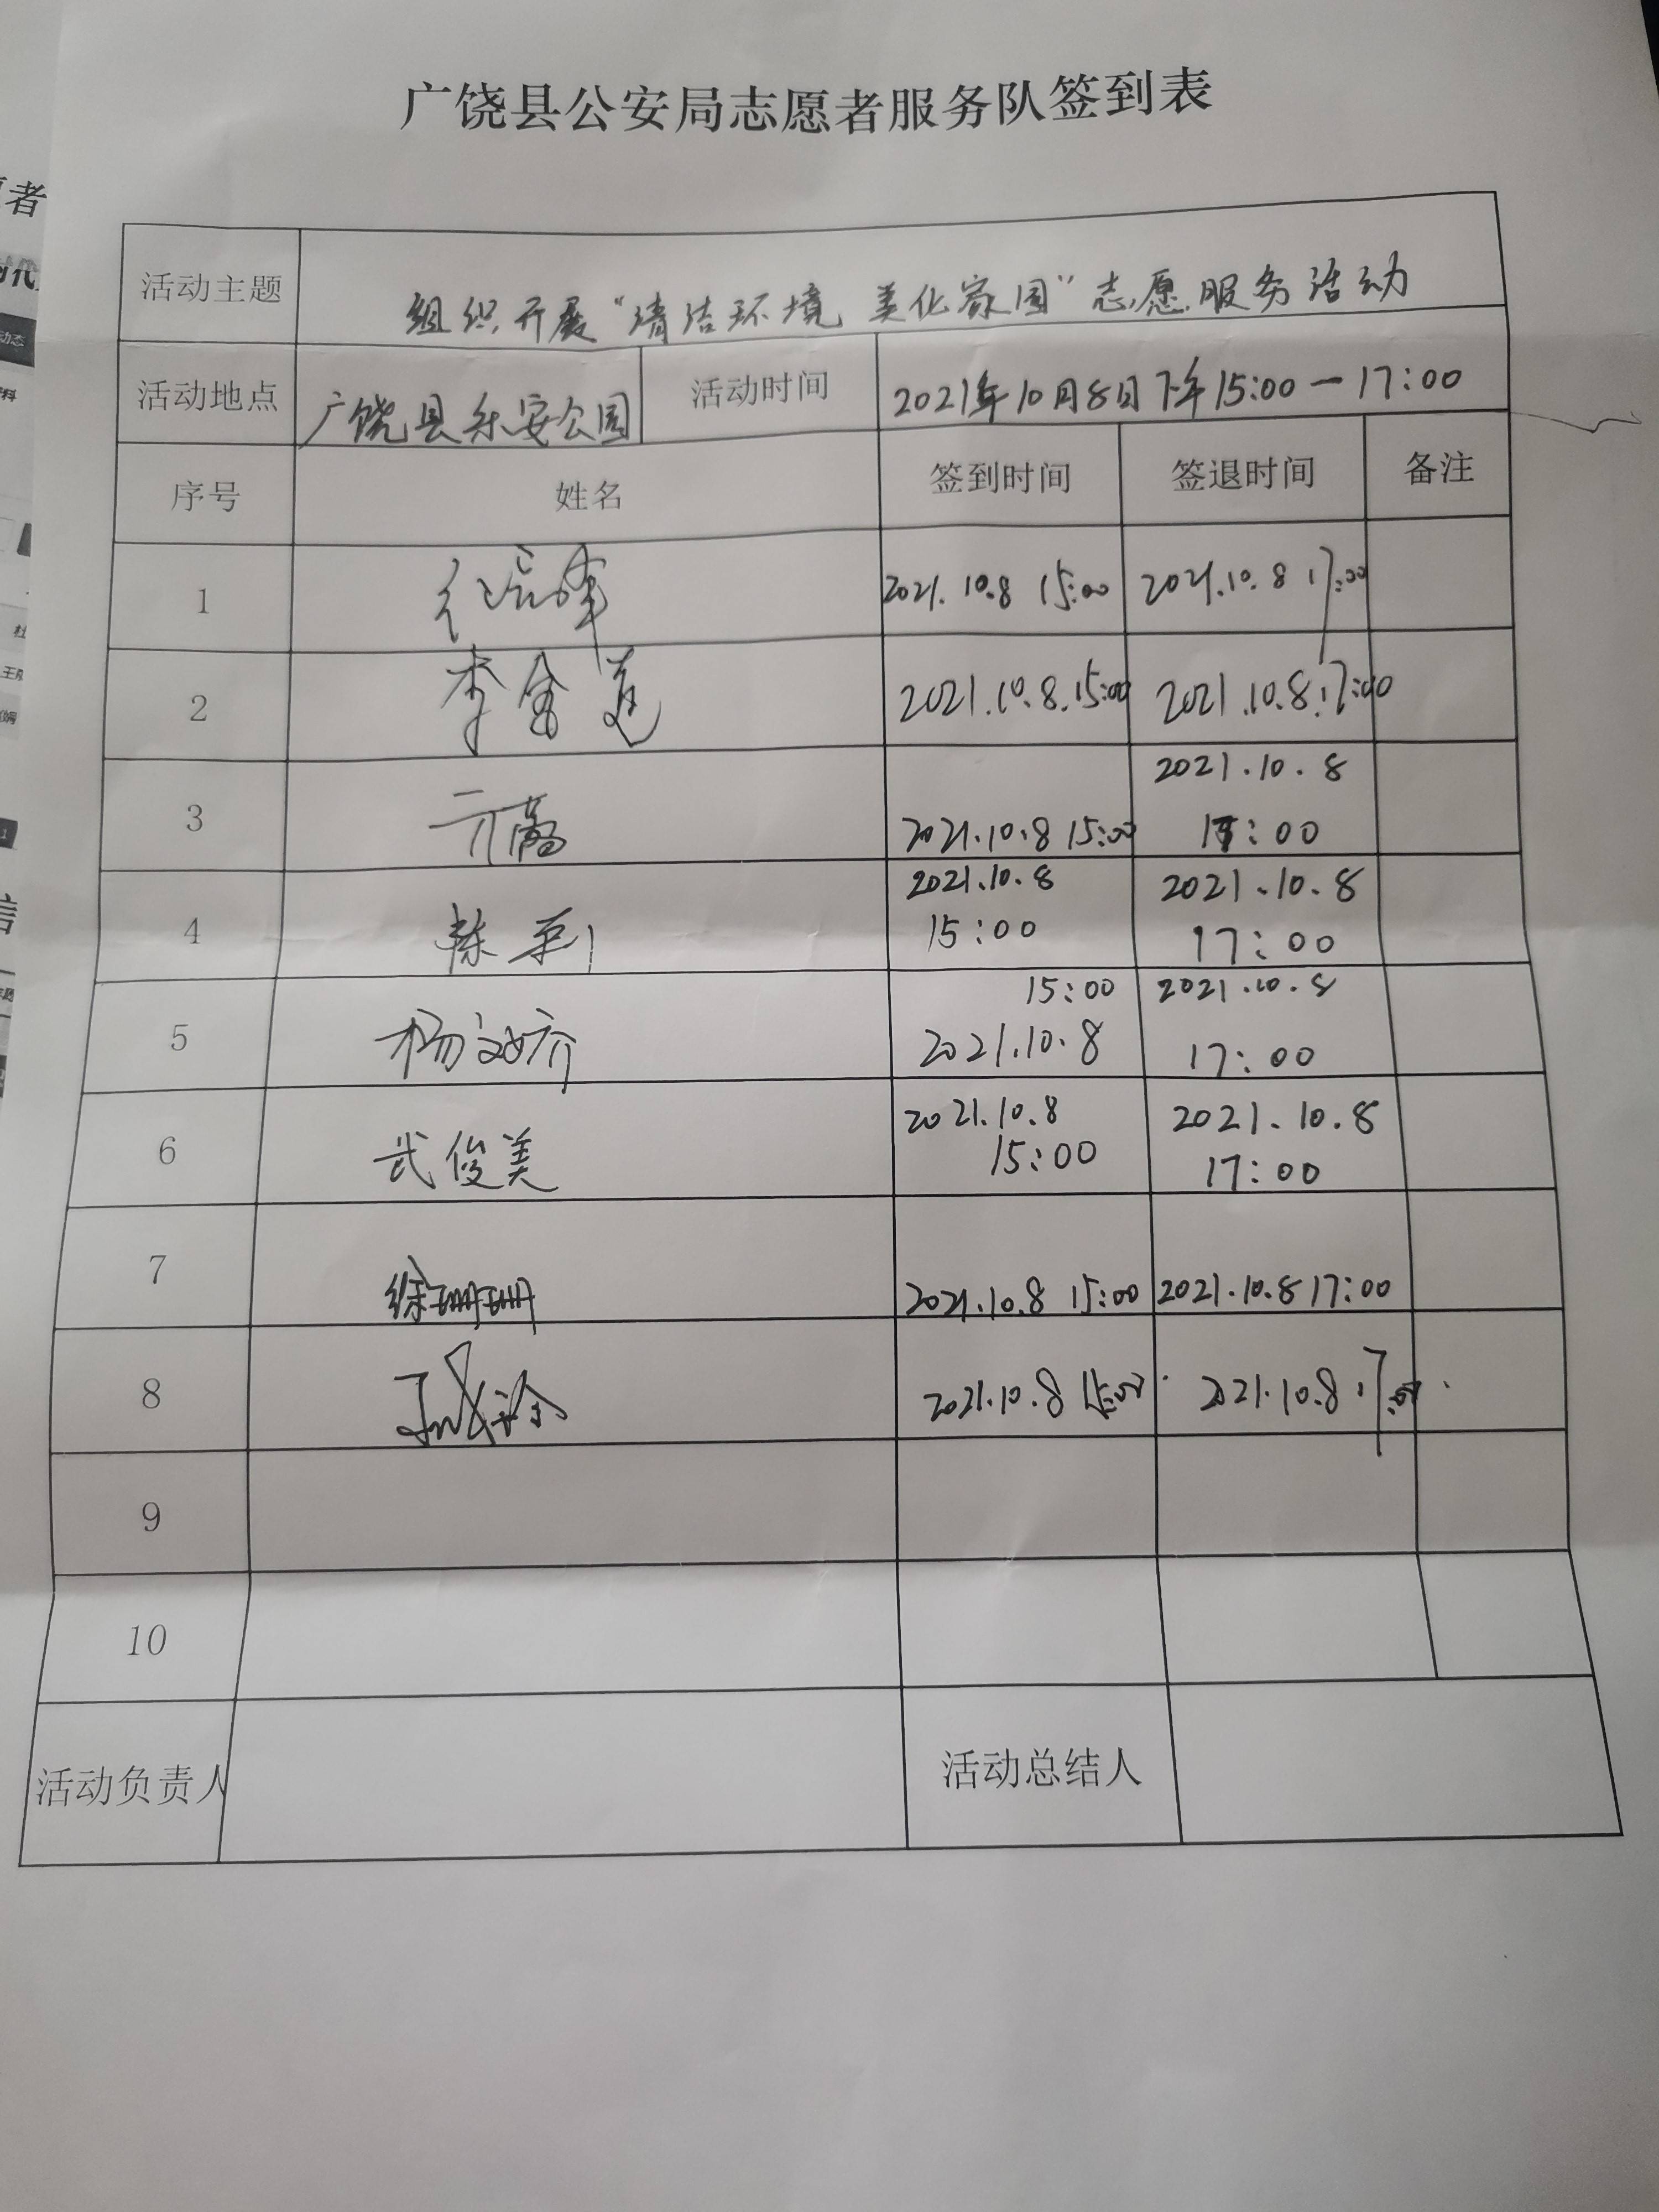 广饶县公安局志愿者服务队签到表
活动主题 组织开展“清洁环境 美化家园”志愿服务活动
活动地点 广饶县乐安公园 活动时间 2021年10月8日下午15:00一17:00
序号 姓名 签到时间 签退时间 备注
1 2021.10.8 15:00 2021.10.8 17:00
2 李金莲 2021.10.8.15:00 2021.10.8.17:00
2021.10.8
3 2021.10.8 15:00 17:00
2021.10.8 2021.10.8
4 陈 15:00 17:00
15:00 2021.10.8
5 杨 2021.10.8 17:00
2021.10.8 2021.10.8
6 武俊美 15:00 17:00
7 徐珊珊 2021.10.8 15:00 2021.10.8 17:00
8 2021.10.8 15:00 2021.10.8 17:00
9
10
活动负责人 活动总结人